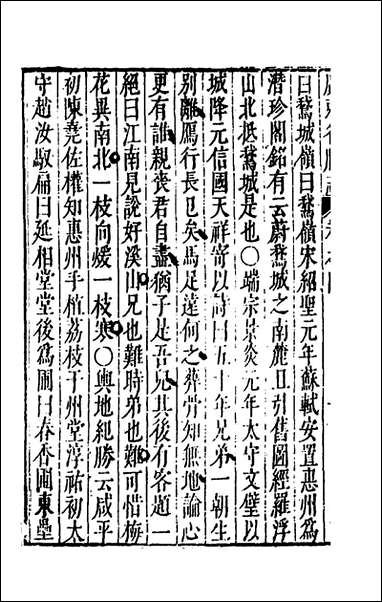 曰鵞城嶺曰鵞嶺宋紹聖元年蘇軾安置惠州爲
潛珍閣銘有云蔚鵞城之南麓且引舊圖經羅浮
山北抵鵞城是也○端宗景炎元年太守文璧以
城降元信國天祥寄以詩曰五十年兄弟一朝生
别離鴈行長已矣馬足遠何之葬骨知無地論心
更有誰親喪君自盡猶子是吾兒其後有客題一
絕曰江南見說好溪山兄也難時弟也難可惜梅
花異南北一枝向煖一枝寒○輿地紀勝云咸平
初陳堯佐權知惠州手植荔枝于州堂淳祐初太
守趙汝馭扁曰延相堂堂後爲圃曰春香圃東壘